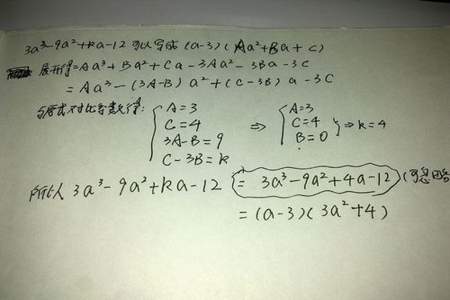 3a³-9a²+ka-12 可以写成 (a-3)(Aa²+Ba+C)
展开得=Aa³+Ba²+Ca-3Aa²-3Ba-3C
=Aa³-(3A-B)a²+(C-3B)a-3C
与原式对比各系数得: { A=3 ⇒ { A=3
C=4 C=4 } ⇒ k=4
3A-B=9 B=0
C-3B=k
所以 3a³-9a²+ka-12 = 3a³-9a²+4a-12 (可忽略
=(a-3)(3a²+4)